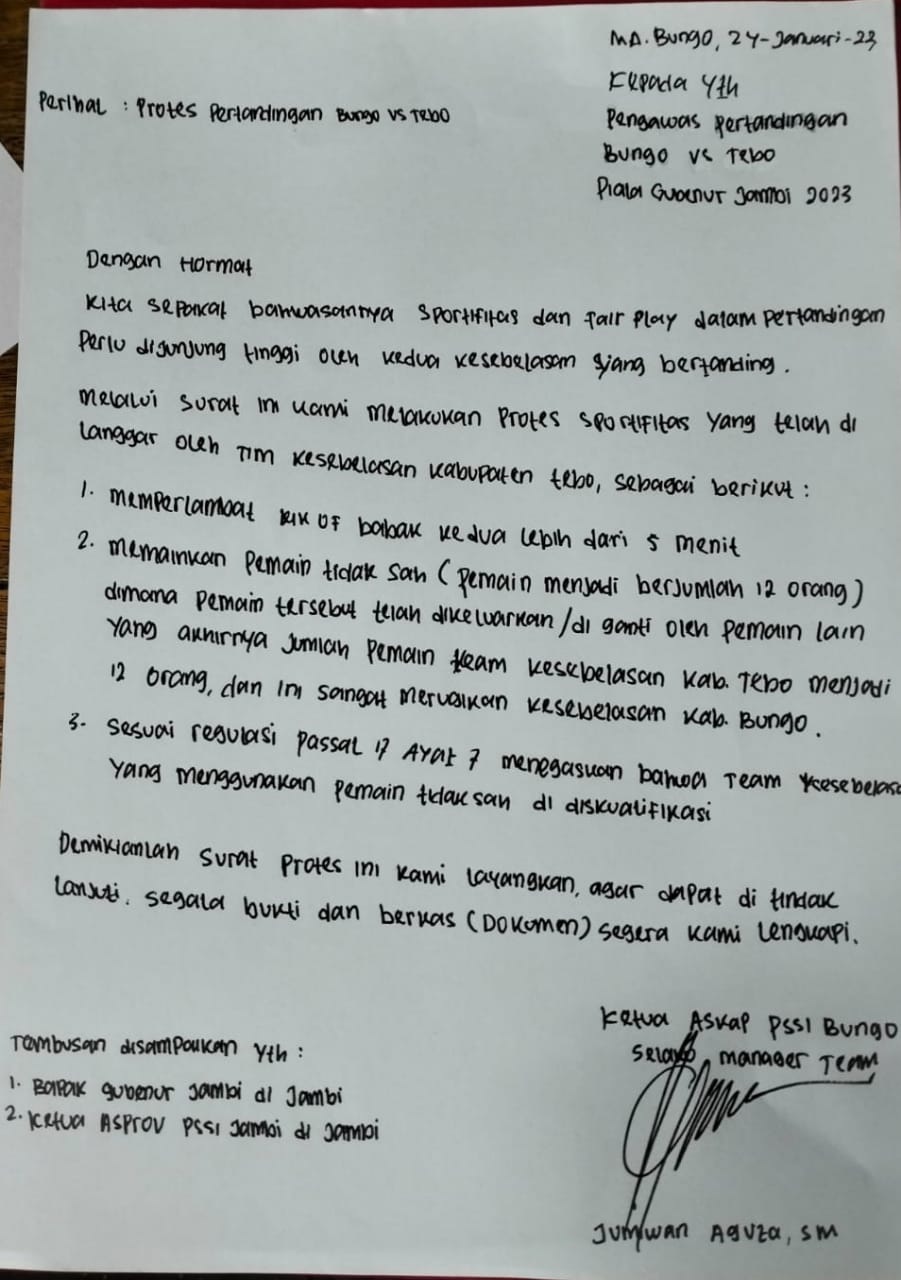 MA. Bungo, 24-Januari-23
Kepada Yth
Perihal : Protes Pertandingan Bungo vs Tebo
Pengawas Pertandingan
Bungo vs Tebo
Piala Gubenur Jambi 2023
Dengan Hormat
Kita sepakat bahwasannya sportifitas dan fair play dalam pertandingan
perlu dijunjung tinggi oleh kedua kesebelasan yang bertanding.
melalui surat ini kami melakukan protes sportifitas yang telah di
langgar oleh Tim kesebelasan kabupaten tebo, sebagai berikut :
1. memperlambat kik of babak kedua lebih dari 5 menit
2. memainkan pemain tidak sah (pemain menjadi berjumlah 12 orang)
dimana pemain tersebut telah dikeluarkan /di ganti oleh pemain lain
yang akhirnya jumlah pemain team kesebelasan kab. Tebo menjadi
12 orang, dan ini sangat merugikan kesebelasan kab. Bungo.
3. sesuai regulasi passal 17 Ayat 7 menegaskan bahwa Team kesebelasa
yang menggunakan pemain tidak sah di diskualifikasi
Demikianlah surat protes ini kami layangkan, agar dapat di tindak
lanjuti. segala bukti dan berkas (Dokumen) segera kami lengkapi.
Ketua ASKAP PSSI Bungo
Selaku manager Team
Tembusan disampaikan Yth :
1. Bapak gubenur Jambi di Jambi
2. Ketua ASPROV PSSI Jambi di Jambi
Jumiwan Aguza, SM